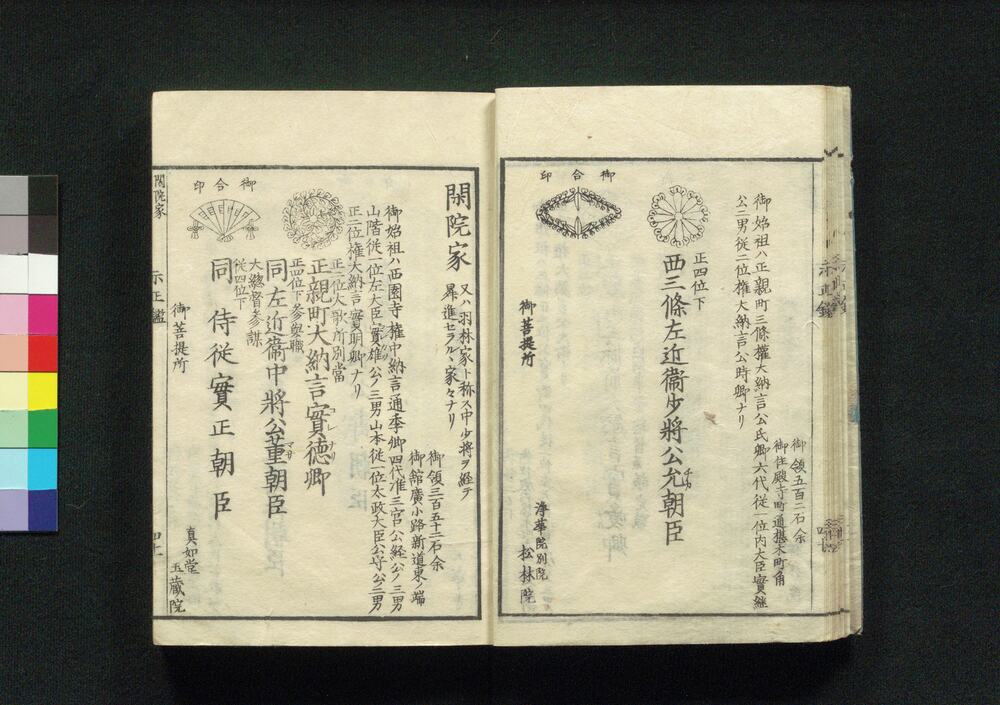 御領五百二石余
御住殿寺町通椹木町角
御始祖ハ正親町三條権大納言公氏卿六代従一位内大臣實継
公二男従二位権大納言公時卿ナリ
正四位下
西三條左近衞少將公允朝臣
御合印
御菩提所
浄華院別院
松林院
閑院家
又ハ羽林家ト称ス中少將ヲ経テ
昇進セラルヽ家々ナリ
御領三百五十二石余
御舘廣小路新道東ノ端
御始祖ハ西園寺権中納言通季卿四代准三宮公経公ノ三男
山階従一位左大臣實雄公ノ三男山本従一位太政大臣公守公ノ二男
正二位権大納言實明卿ナリ
正二位大歌所別當
正親町大納言實德卿
正四位下参與職
同左近衞中將公董朝臣
大總督参謀
従四位下
同侍従實正朝臣
御合印
御菩提所
真如堂
玉蔵院
閑院家